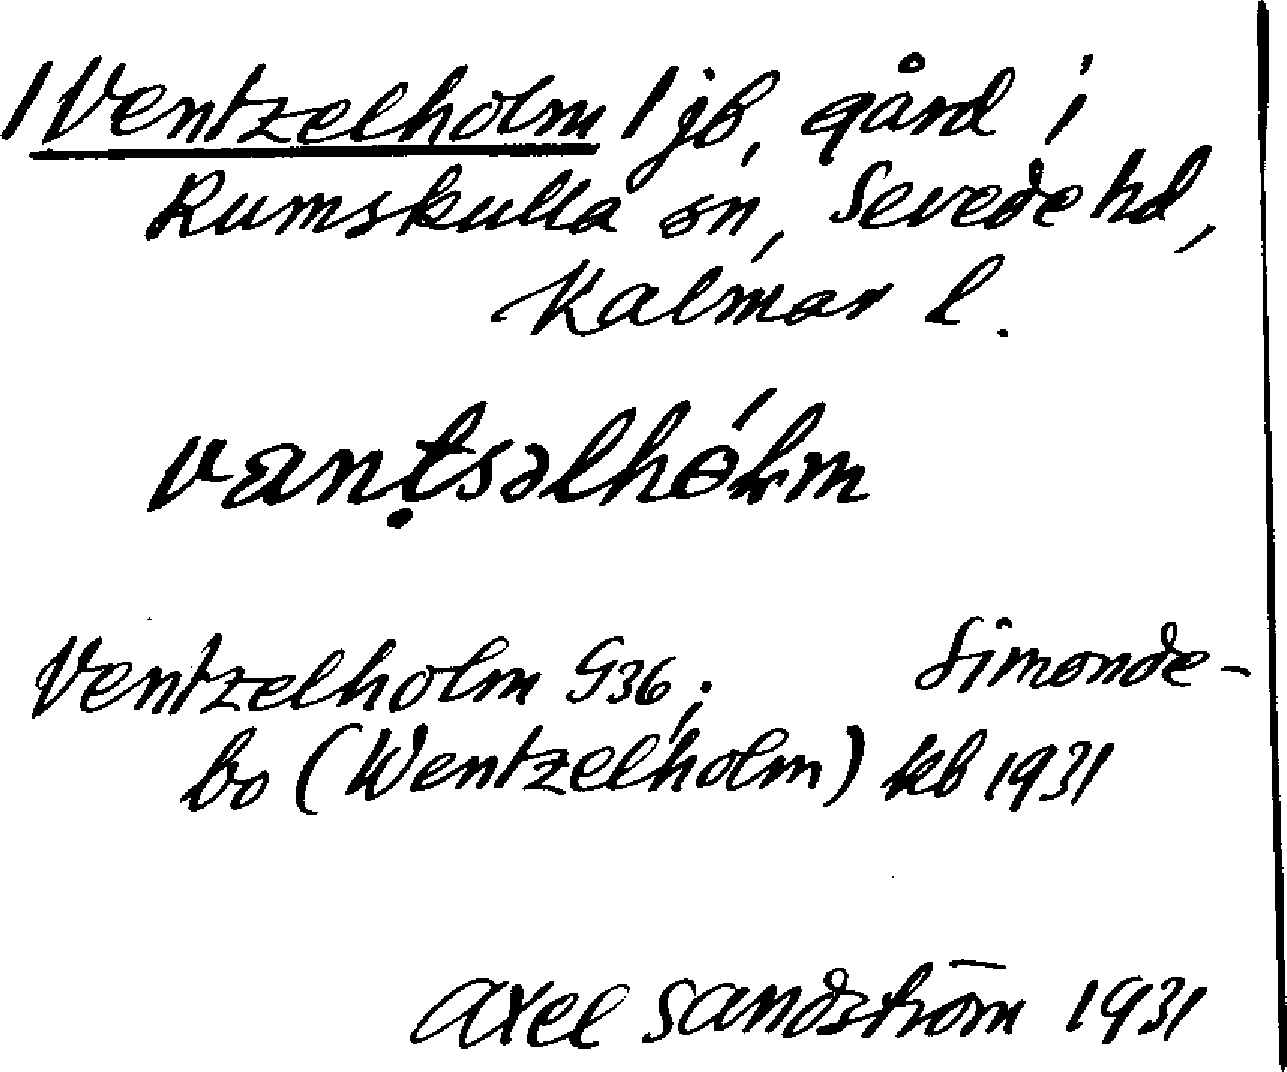 /Ventzelholm/ jb, gård i
Rumskulla sn, Sevede hd,
Kalmar l.
Ventzelholm G36; Simonde-
bo (Wentzelholm) kb 1931
Axel Sandström 1931